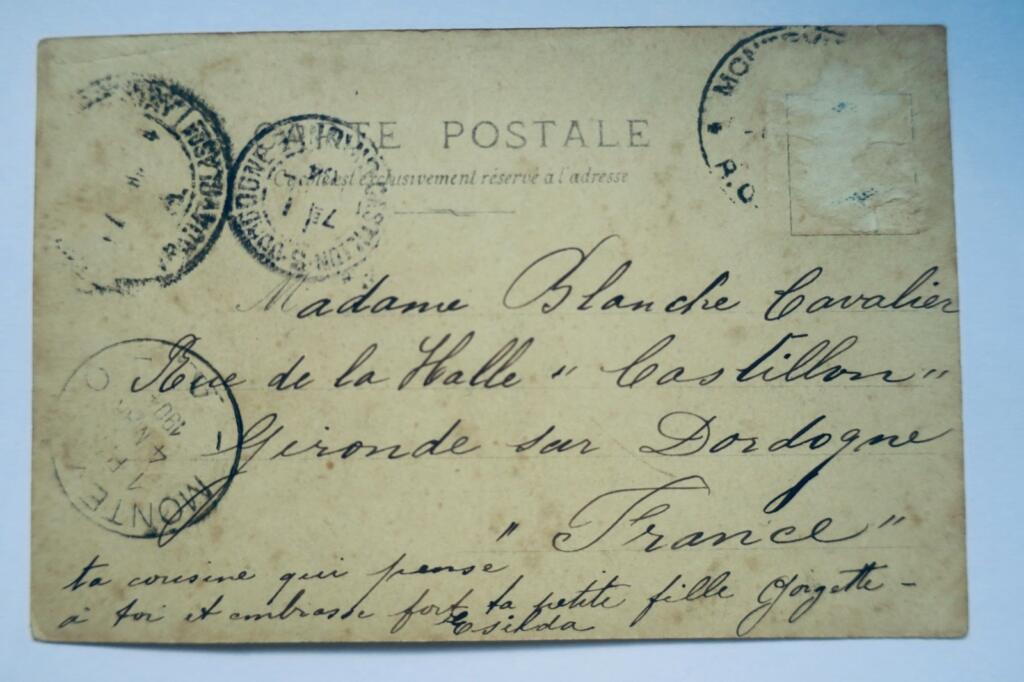 CARTE POSTALE
Ce côté est exclusivement réservé à l'adresse
MONTE
R.O
Madame Blanche Cavalier
Rue de la Halle " Castillon "
Gironde sur Dordogne
" France "
MONTE
ta cousine qui pense
à toi et embrasse fort ta petite fille Gorgette -
Esilda